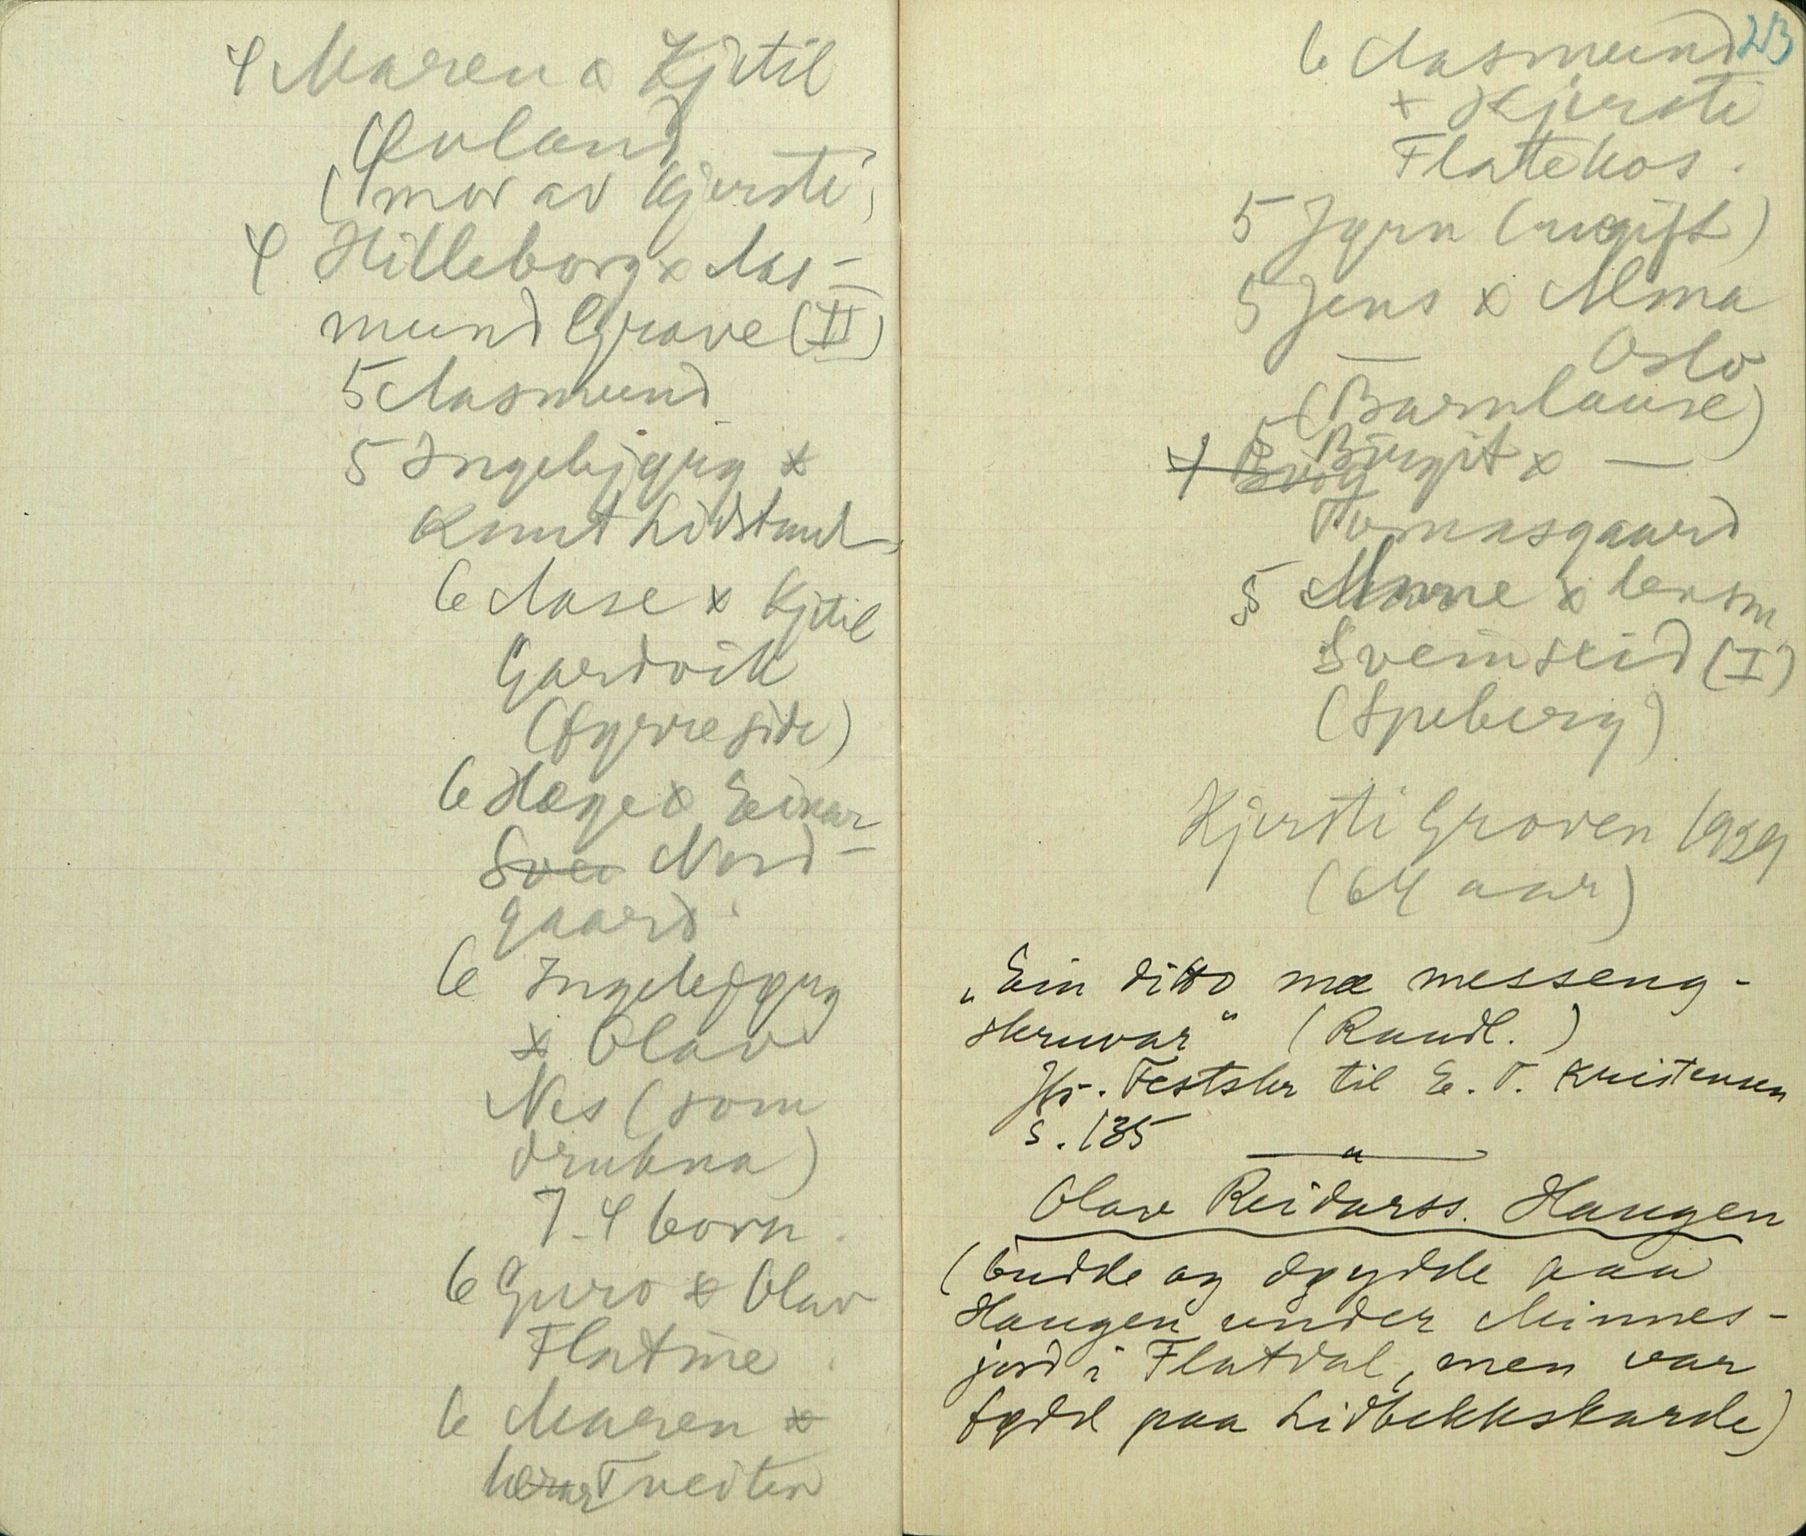 4 Maren x Kjetil
Øvland
(mor av Kjersti)
4 Hilleborg x Aas-
mund Grave (II)
5 Aasmund
5 Ingebjørg x
Knut Lidstaul
6 Aase x Kjetil
Gardvik
(fyrresdir)
6 Hæge x Einar
Svei Nord-
gaard.
6 Ingebjørg
x Olav
Nes (som
drukna)
7. 4 born.
6 Guro x Olav
Flatine.
6 Maren x
Tveiten
213
6 Aasmund
x Kjersti
Flatekos.
5 Jørn (ugift)
5 Jens x Alma
— Oslo
(Barnlause)
5 Birgit x —
Tomasgaard
5 Anne x
Sveinseid (I)
(Speberg)
Kjersti Groven 1939
(64 aar)
„Ein ditto mæ messeng-
skruvar" (Raudl.)
Jfr. Festskr til E. T. Kristensen
s. 135
— " —
Olav Reidarss. Haugen
(budde og døydde paa
Haugen under Minnes-
jord i Flatdal, men var
fødd paa Lidbekkskarde)